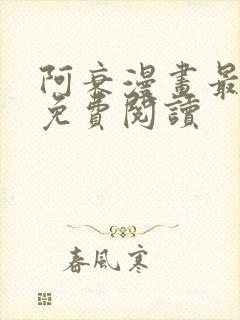 阿衰漫畫最
免費閱讀
春風寒